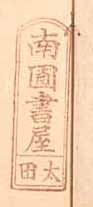 南圃書屋
太田